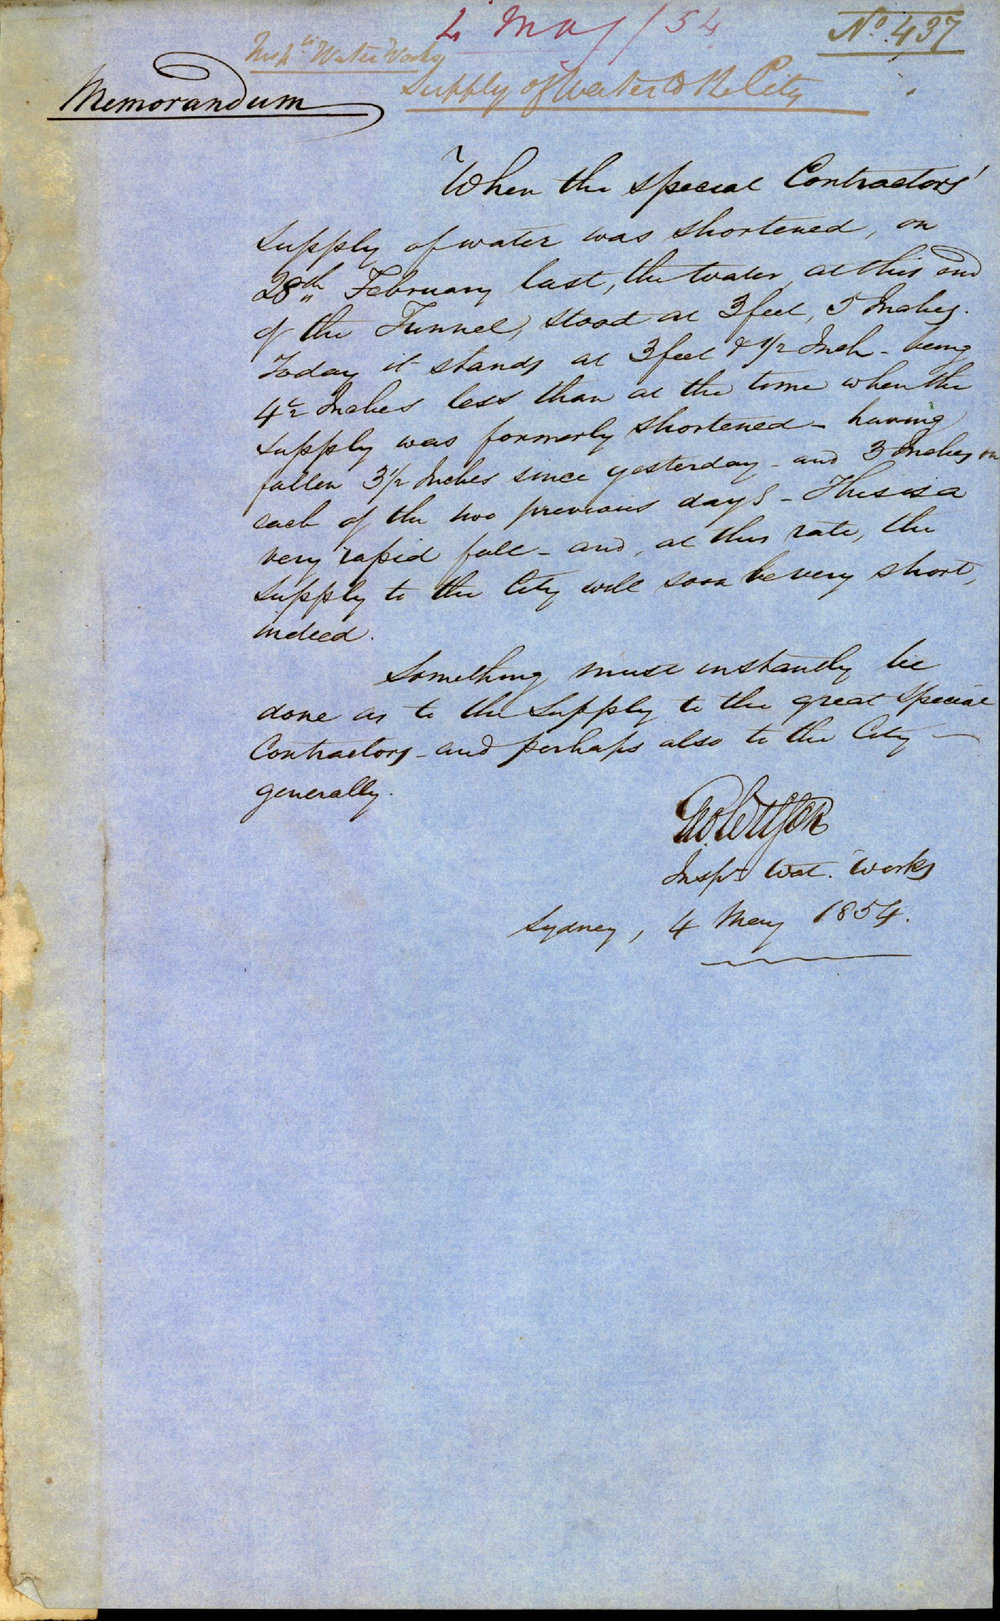 4 May / 54
No. 437
Insp. Water Works
Supply of Water to the City
Memorandum
When the special Contractors'
supply of water was shortened, on
28th February last, the water, at this end
of the Tunnel, stood at 3 feet, 5 Inches.
Today it stands at 3 feet & 1/2 Inch - being
4 1/2 Inches less than at the time when the
supply was formerly shortened - having
fallen 3 1/2 Inches since yesterday - and 3 Inches on
each of the two previous days - This is a
very rapid fall - and, at this rate, the
supply to the City will soon be very short,
indeed.
Something must instantly be
done as to the supply to the great special
Contractors - and perhaps also to the City -
generally.
Inspr. Wat. Works
Sydney, 4 May 1854.